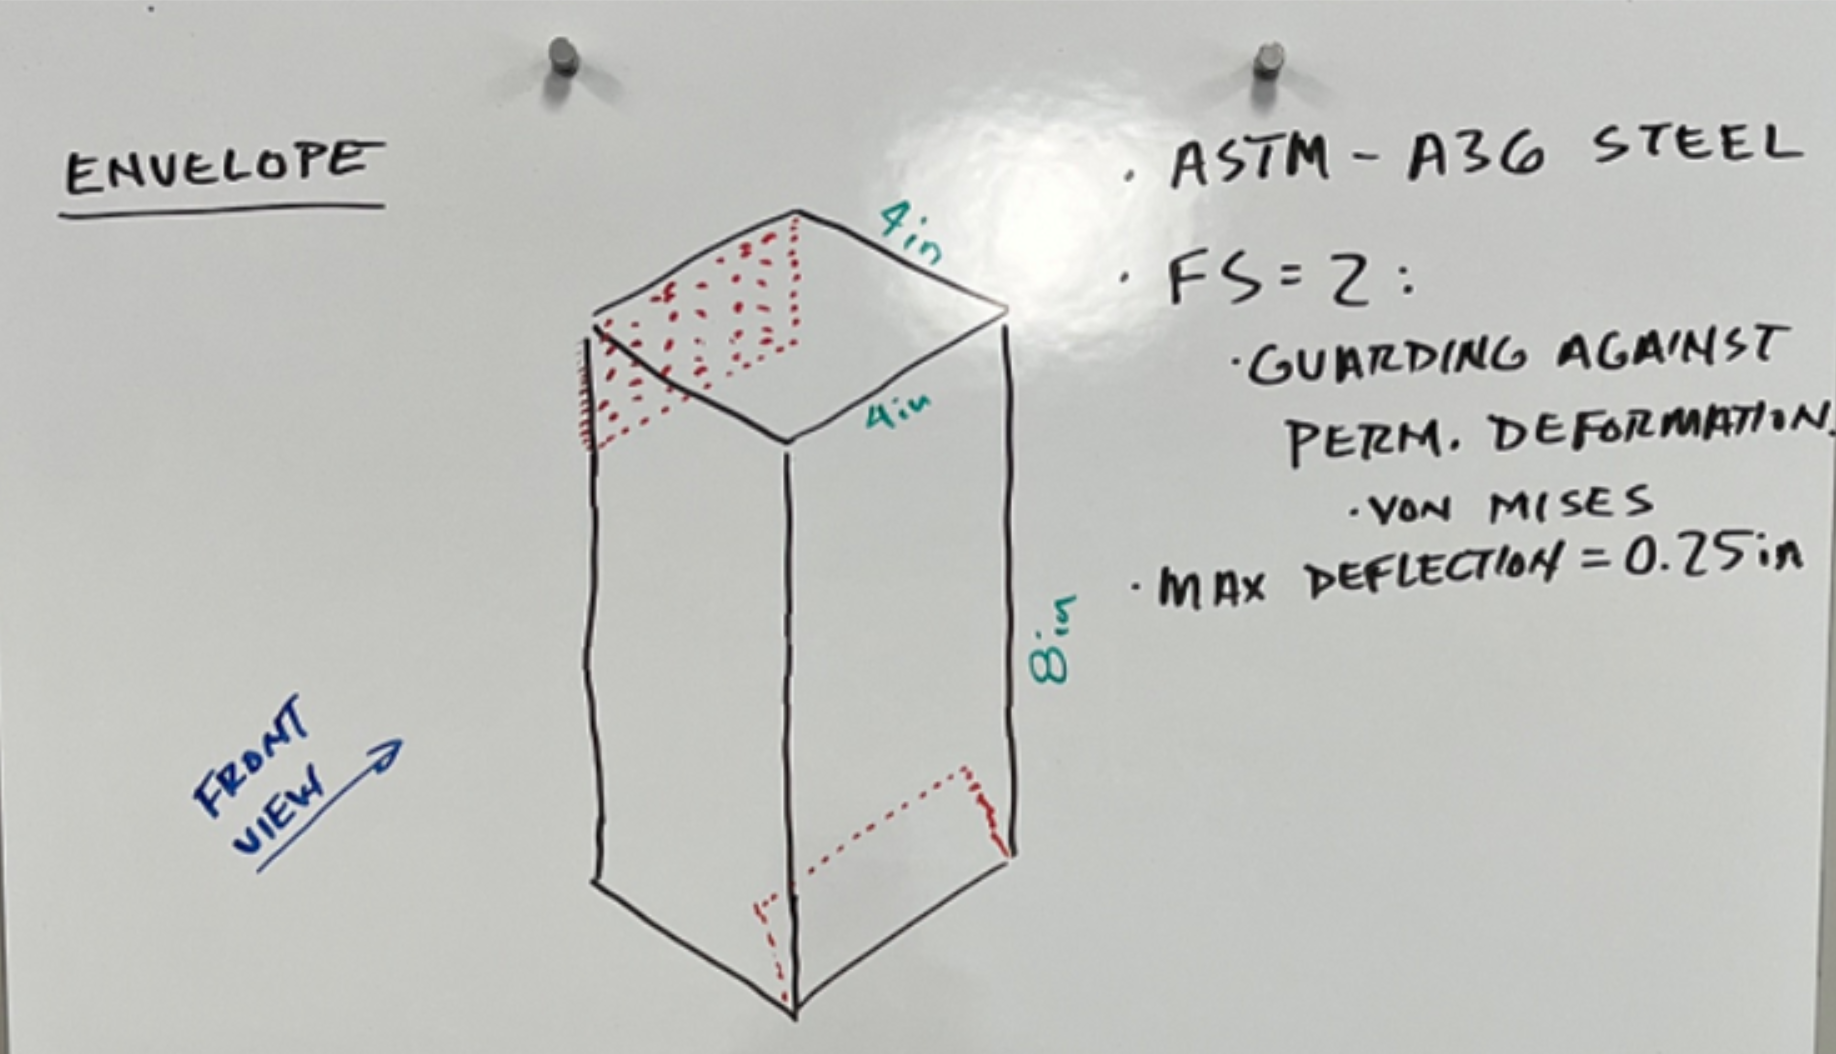 ENVELOPE
4in
4in
8in
FRONT
VIEW
· ASTM - A36 STEEL
· FS = 2 :
· GUARDING AGAINST
PERM. DEFORMATION.
· VON MISES
· MAX DEFLECTION = 0.25in